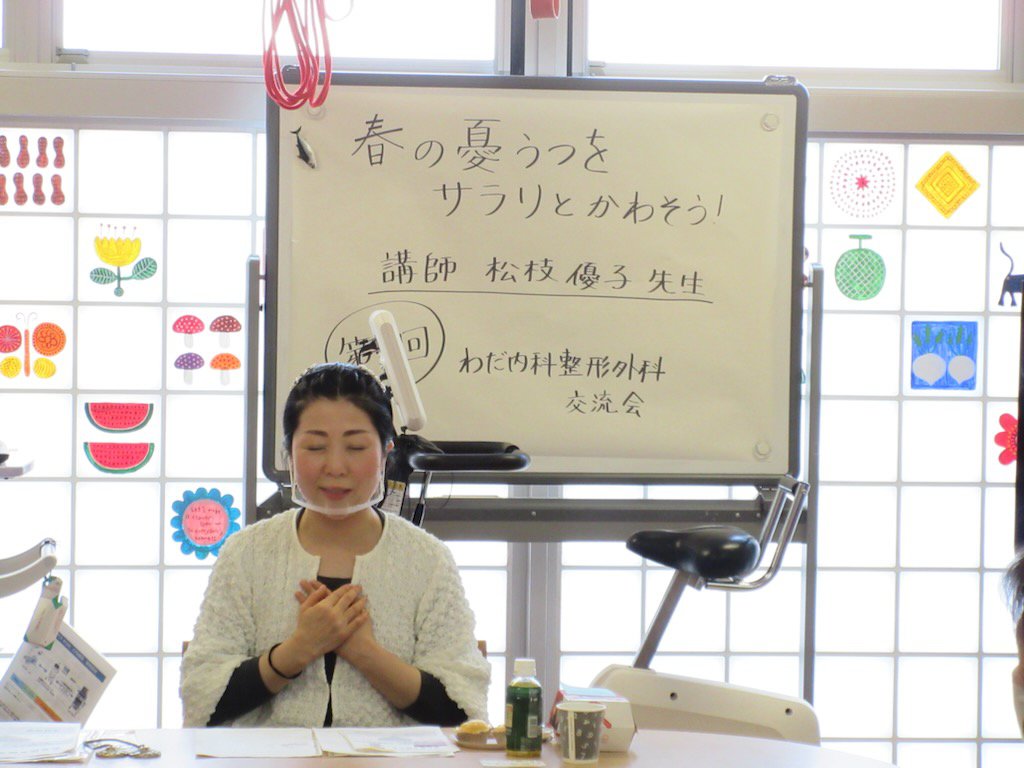 春の憂うつを
サラリとかわそう!
講師 松枝優子先生
第 回
わだ内科整形外科
交流会